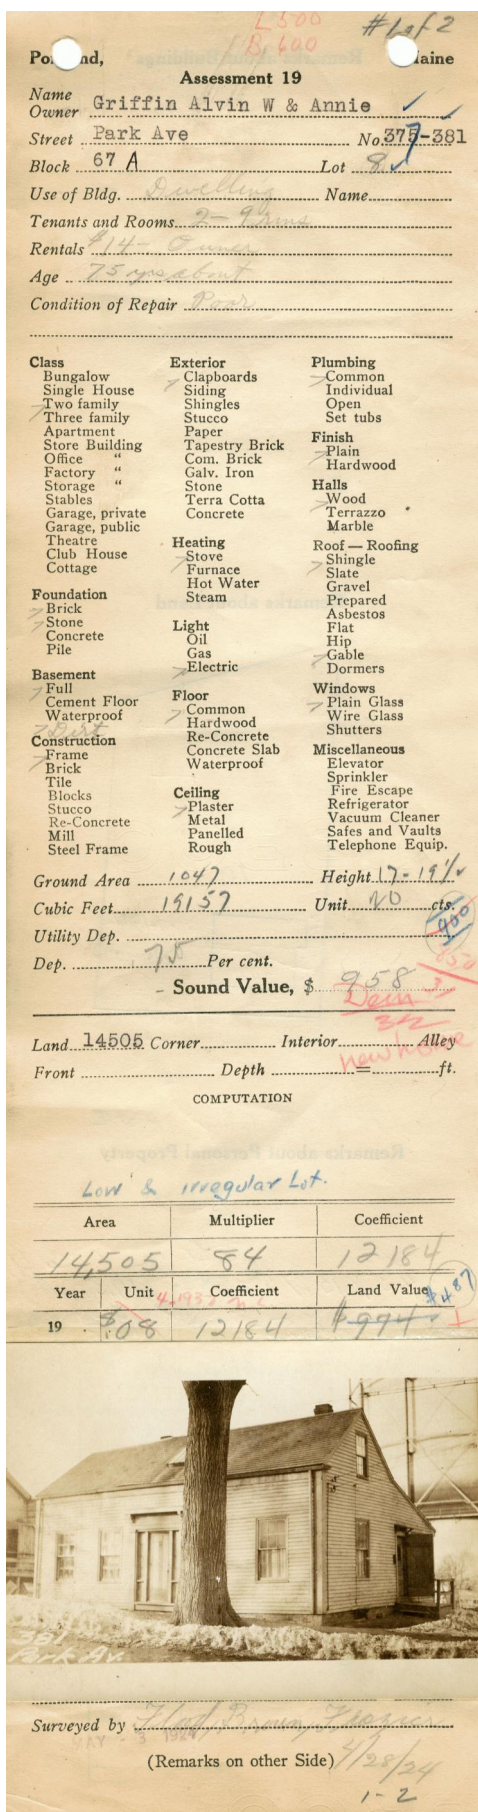 L 500 #1 of 2
B. 600
Maine
Assessment 19
Name
Owner Griffin Alvin W & Annie
Street Park Ave No. 375-381
Block 67 A Lot 8
Use of Bldg. Dwelling Name
Tenants and Rooms 2 - 9 rms
Rentals $14 - Owner
Age 75 yrs about
Condition of Repair Poor
Class
Bungalow
Single House
Two family
Three family
Apartment
Store Building
Office "
Factory "
Storage "
Stables
Garage, private
Garage, public
Theatre
Club House
Cottage
Foundation
Brick
Stone
Concrete
Pile
Basement
Full
Cement Floor
Waterproof
Dirt
Construction
Frame
Brick
Tile
Blocks
Stucco
Re-Concrete
Mill
Steel Frame
Exterior
Clapboards
Siding
Shingles
Stucco
Paper
Tapestry Brick
Com. Brick
Galv. Iron
Stone
Terra Cotta
Concrete
Heating
Stove
Furnace
Hot Water
Steam
Light
Oil
Gas
Electric
Floor
Common
Hardwood
Re-Concrete
Concrete Slab
Waterproof
Ceiling
Plaster
Metal
Panelled
Rough
Plumbing
Common
Individual
Open
Set tubs
Finish
Plain
Hardwood
Halls
Wood
Terrazzo
Marble
Roof — Roofing
Shingle
Slate
Gravel
Prepared
Asbestos
Flat
Hip
Gable
Dormers
Windows
Plain Glass
Wire Glass
Shutters
Miscellaneous
Elevator
Sprinkler
Fire Escape
Refrigerator
Vacuum Cleaner
Safes and Vaults
Telephone Equip.
Ground Area 1047 Height 17-19½
Cubic Feet 19157 Unit 20 cts.
Utility Dep. 400
Dep. 75 Per cent. 650
Sound Value, $ 958
Dem
34
Land 14505 Corner Interior Alley
new house
Front Depth = ft.
COMPUTATION
Low & irregular Lot.
Area Multiplier Coefficient
14,505 84 12184
Year Unit Coefficient Land Value $487
19 $.08 12184 $974
381
Park Av.
Surveyed by Floyd Brown Frazier
MAY - 3 1924
(Remarks on other Side) 4/28/24
1-2